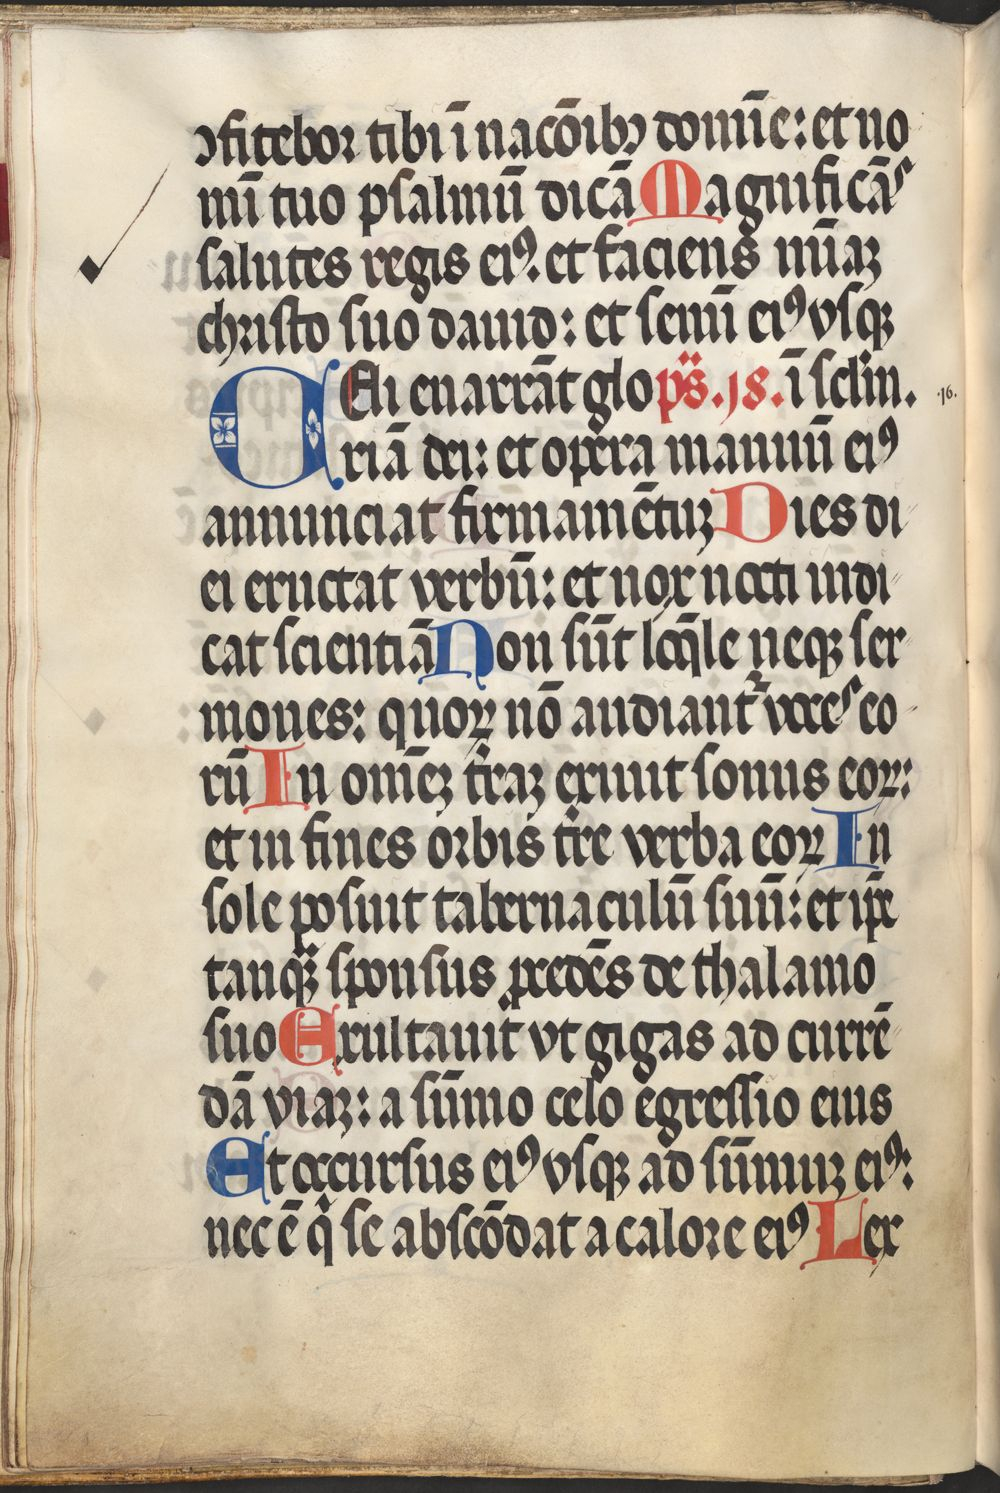 ↄfitebor tibi ī nacōibꝫ domīe: et no
mī tuo psalmū dicā Magnificās
salutes regis eiꝰ. et faciens mīaꝫ
christo suo dauid: et semī eiꝰ vsqꝫ
CEli enarrāt glo ps̄. 18. ī sclin. .16.
riā dei: et opera manuū eiꝰ
annunciat firmamētuꝫ Dies di
ei eructat verbū: et nox nocti indi
cat scientiā Non sūt lq̄le neqꝫ ser
mones: quoꝝ nō audiant᷑ voces eo
rū In omēꝫ t̄raꝫ exiuit sonus eoꝝ:
et in fines orbis t̄re verba eoꝝ In
sole posuit tabernaculū suū: et ip̄e
tanqꝫ sponsus ꝓcedēs de thalamo
suo Exultauit vt gigas ad currē
dā viaꝫ: a sūmo celo egressio eius
Et occursus eiꝰ vsqꝫ ad sūmuꝫ eiꝰ:
nec ē q se abscōdat a calore eiꝰ Lex